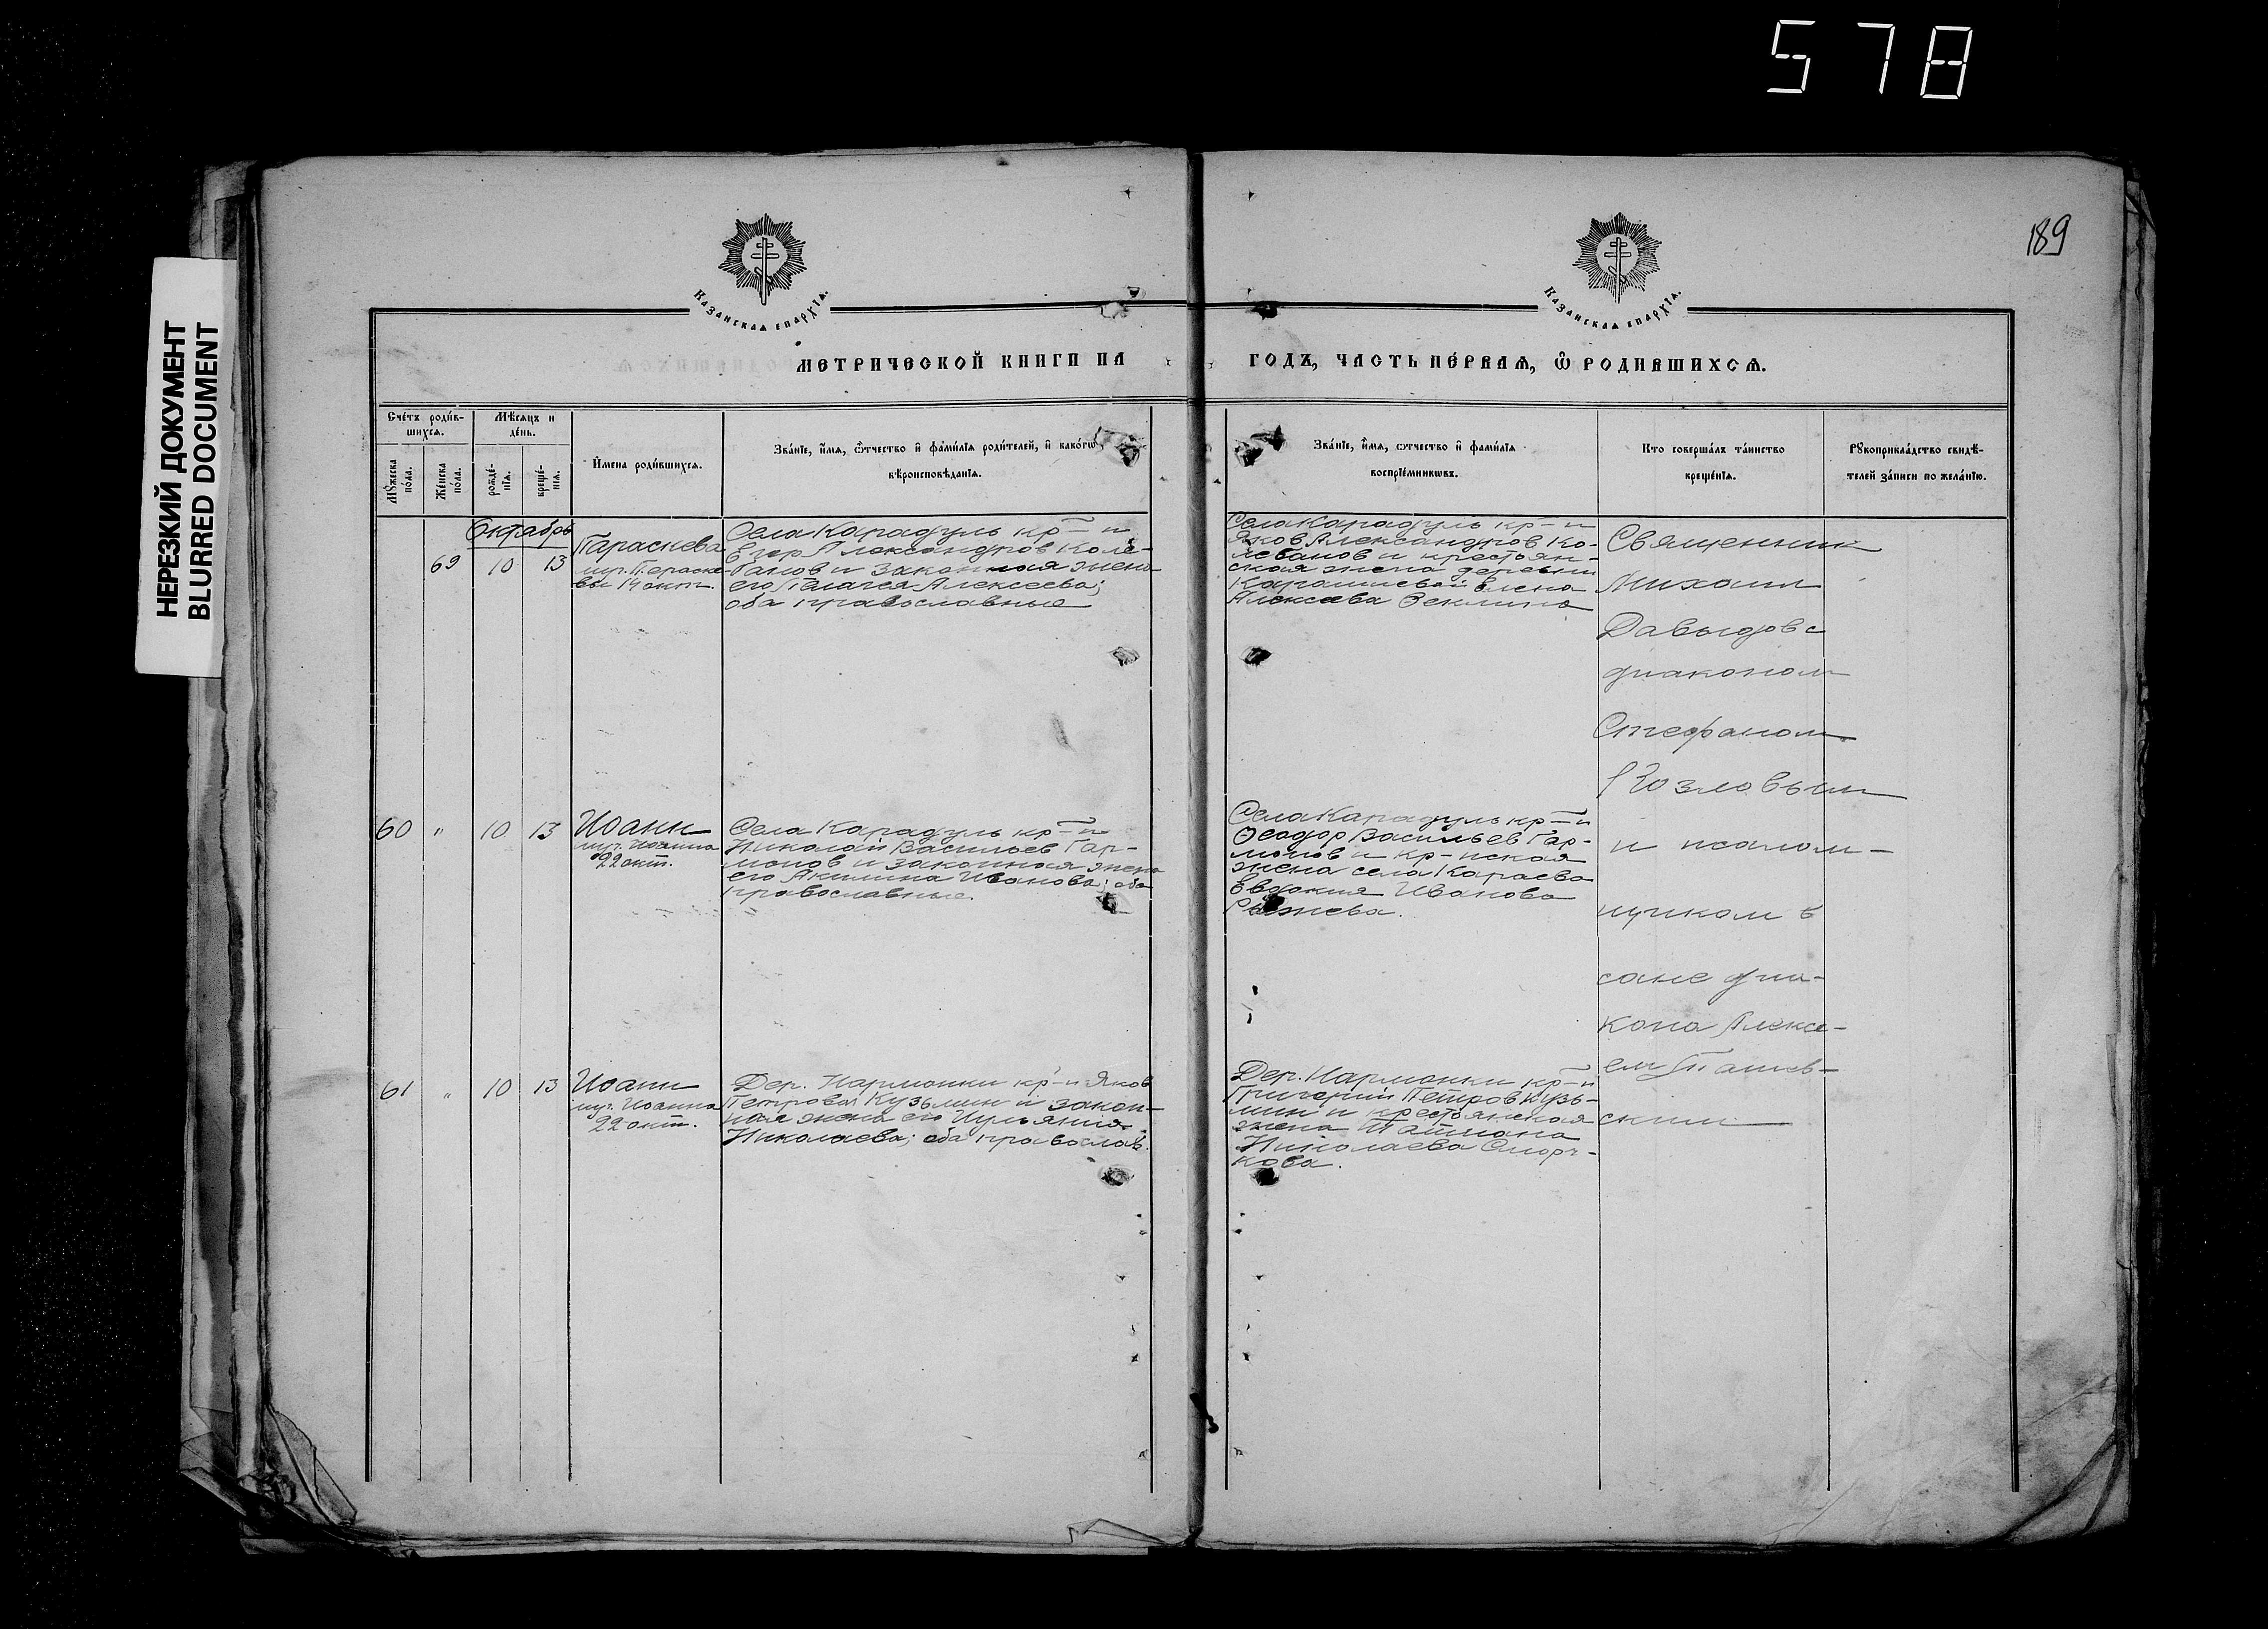 578
НЕРЕЗКИЙ ДОКУМЕНТ
BLURRED DOCUMENT
189
Казанская епархїѧ.
Казанская епархїѧ.
МЕТРИЧЕСКОЙ КНИГИ НА
ГОДЪ, ЧАСТЬ ПЕ́РВАѦ, Ѿ РОДИВШИХСѦ.
Сче́тъ роди́в-
шихсѧ.
Мѹ́жеска пола.
Же́нска по́ла.
Мѣ́сѧцъ и
де́нь.
рожде́-
нїѧ.
креще́-
нїѧ.
И҆мена роди́вшихсѧ.
Зва́нїе, и҆́мѧ, ѻ҆́тчество и҆ фами́лїѧ роди́телей, и҆ како́гѡ
вѣроисповѣ́данїѧ.
Зва́нїе, и҆́мѧ, ѻтчество и҆ фами́лїѧ
воспрїе́мникѡвъ.
Кто соверша́лъ та́инство
креще́нїѧ.
Рѹкоприкла́дство свидѣ́-
телей за́писи по жела́нїю.
Октябрь
69 10 13
Параскева
муч. Параске-
вы 14 окт.
Села Карадуль кр-н
Егор Александров Коле-
банов и законная жена
его Пелагея Алексеева;
оба православные
Села Карадуль кр-н
Яков Александров Ко-
лебанов и крестьян-
ская жена деревни
Елена
Алексеева
Священник
Михаил
Давыдов с
диаконом
Стефаном
Козловым
и псалом-
щиком в
сане диа-
кона Алексе-
ем
ским
60 " 10 13
Иоанн
муч. Иоанна
22 окт.
Села Карадуль кр-н
Николай Васильев Гар-
монов и законная жена
его Акилина Иванова; оба
православные.
Села Карадуль кр-н
Феодор Васильев Гар-
монов и кр-нская
жена села Караева
Евдокия Иванова
61 " 10 13
Иоанн
муч. Иоанна
22 окт.
Дер. Нармонки кр-н Яков
Петров Кузьмин и закон-
ная жена его Иульяния
Николаева; оба православ.
Дер. Нармонки кр-н
Григорий Петров Кузь-
мин и крестьянская
жена Татиана
Николаева